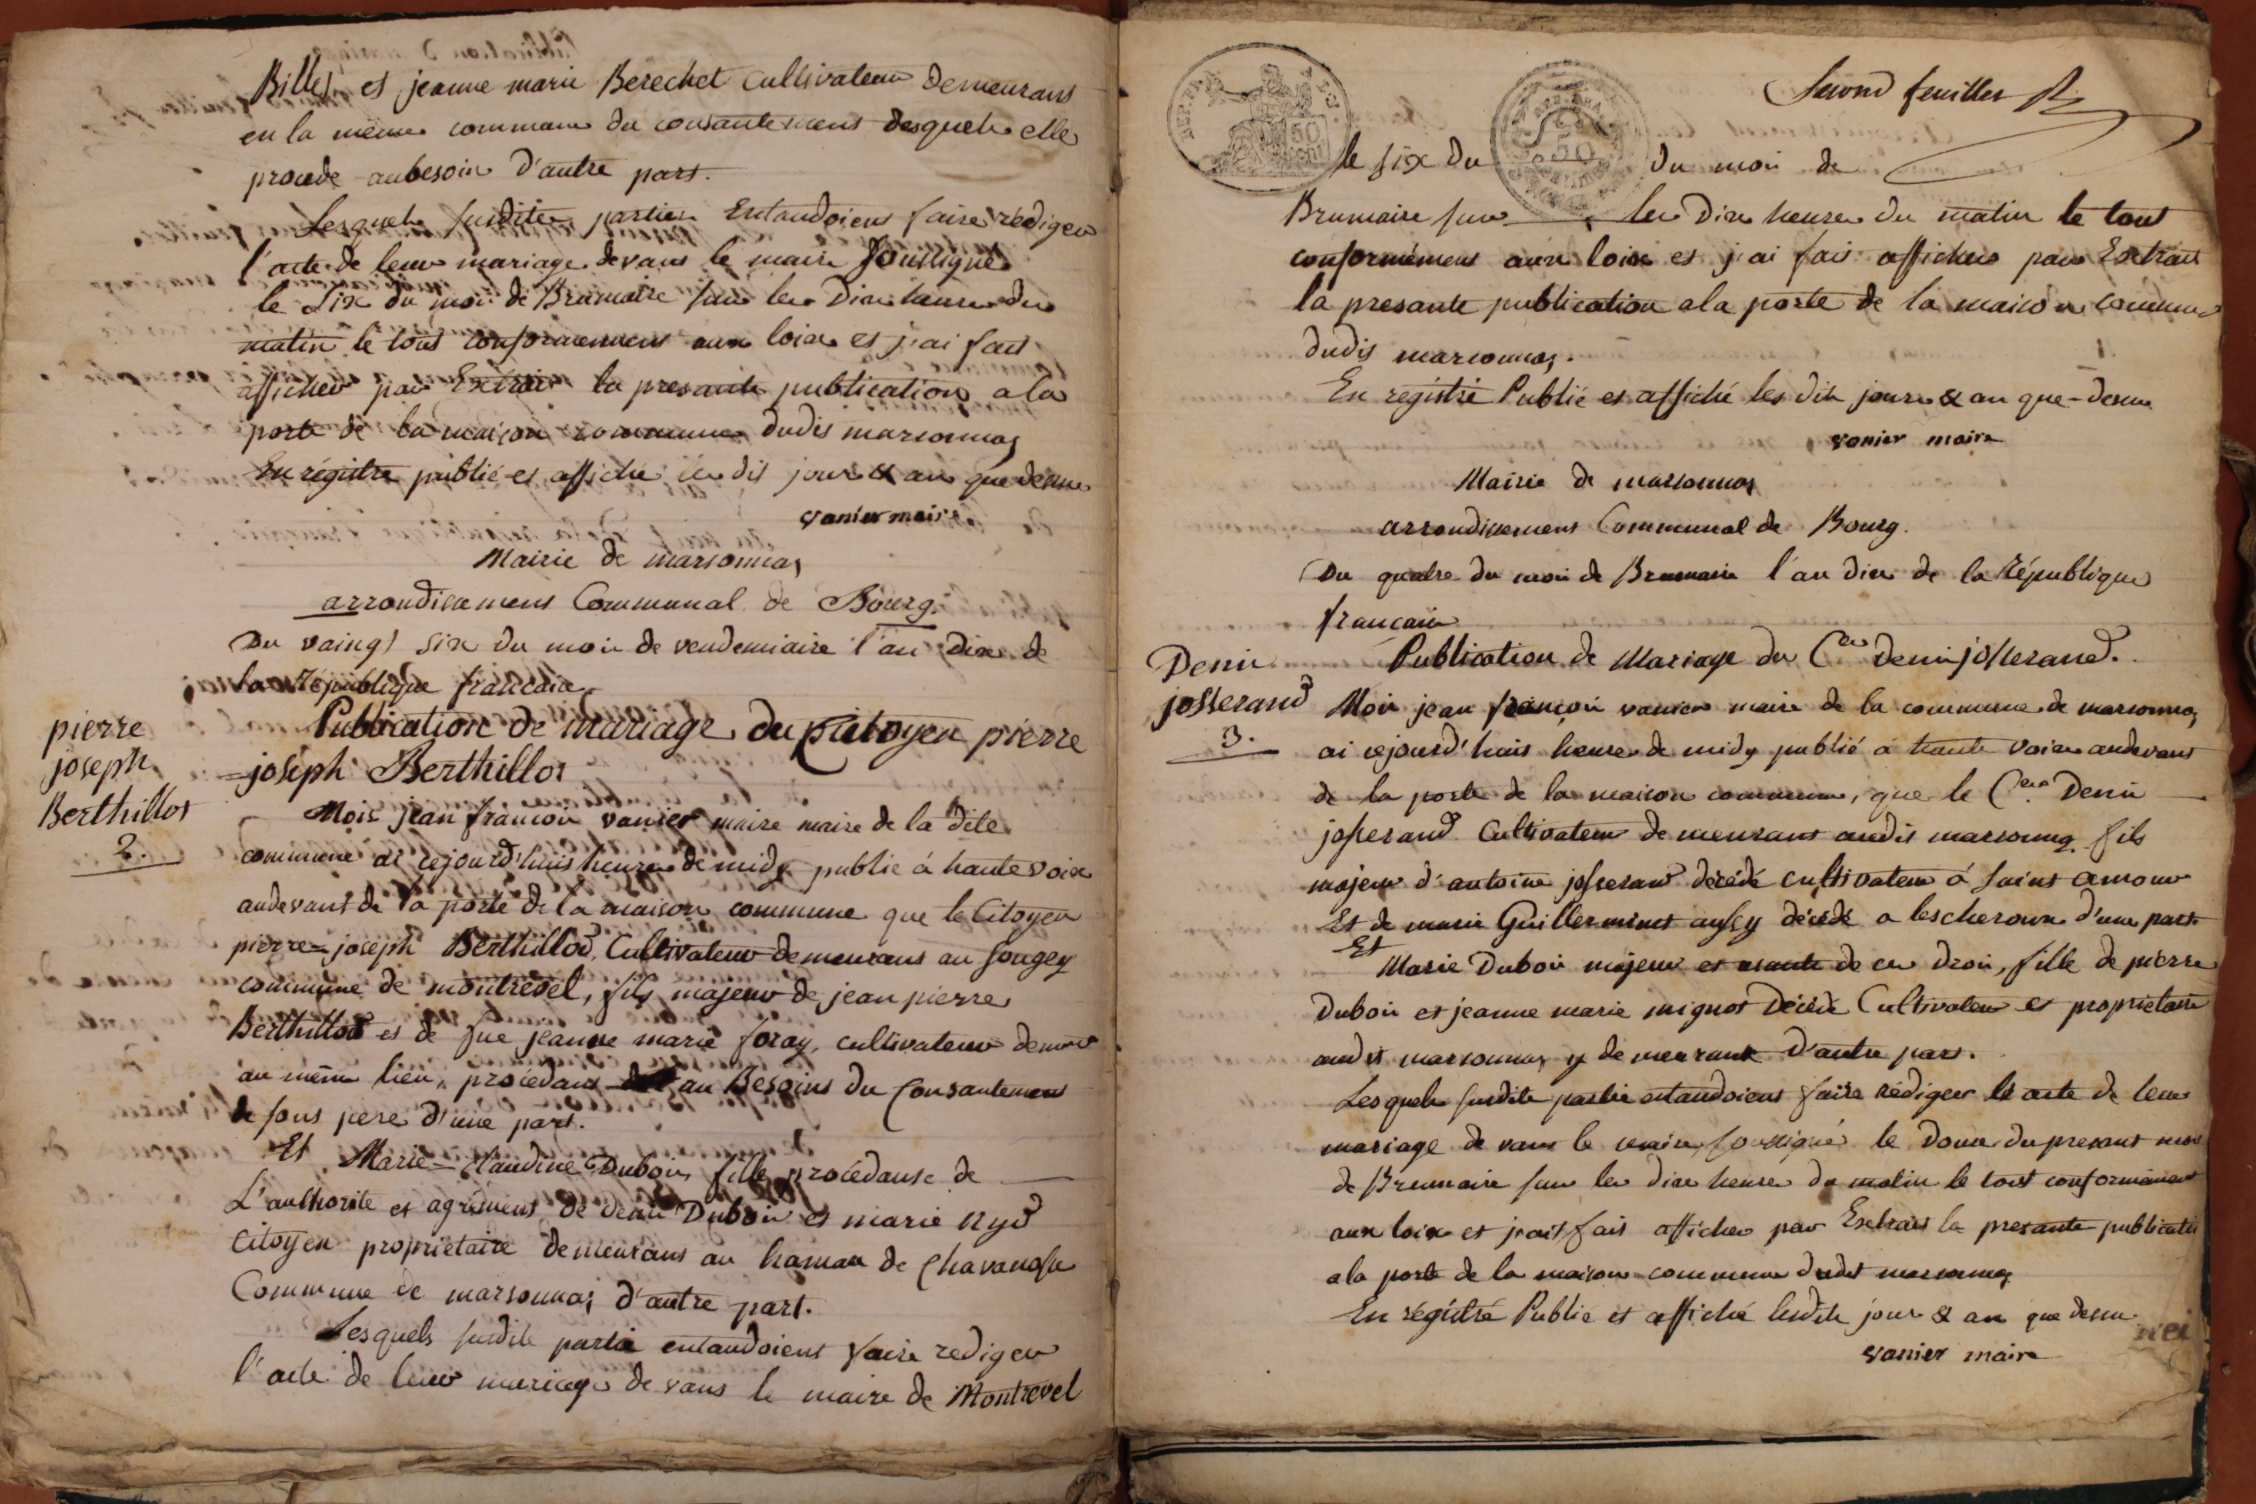 Billet et jeanne marie Berechet cultivateur demeurans
en la même commune du consantement desquels elle
procede aubesoin d'autre part.
Lesquels susdites parties Entandoient faire rédiger
l'acte de leur mariage devans le maire Soussigné
le six du moi de Brumaire sur les Dix heure du
matin le tous conformement aux loix et j'ai fait
afficher par Extrait la presante publication a la
porte de la maison commune dudit marsonnas
En régistre publié et affiché les dit jour & an que dessus
vanier maire
Mairie de marsonnas
arrondisement Communal de Bourg.
Du vaingt six du moi de vendemiaire l'an dix de
la République francaise
pierre
joseph
Berthillot
2.
Publication de mariage du Citoyen pierre
=joseph Berthillot
Moi jean francoi vanier maire maire de la dite
commune ai cejourd'huis heure de midy publié à haute voix
audevant de la porte de la maison commune que le Citoyen
pierre=joseph Berthillod, Cultivateur demeurans au Sougey
commune de montrevel, fils majeur de jean pierre
Berthillod et de fue jeanne marie foray, cultivateur demeur
au même lieu, procédans au Besoins du Consantement
de sons pere d'une part.
Et Marie=Claudine Duboi, fille procédanse de
L'authorité et agrément de Dubois et marie nyd
Citoyen propriétaire demeurans au hamau de Chavanosse
Commune de marsonnas d'autre part.
Lesquels susdits partie entandoient faire rediger
l'acte de leur mariage devans le maire de Montrevel
Second feuillet
le six du du moi de
Brumaire sur les Dix heure du matin le tout
conformément aux loix et j'ai fais afficher par Extrait
la presante publication a la porte de la maison commune
dudit marsonnas.
En régistré Publié et affiché les dit jour & an que=dessus
vanier maire
Mairie de marsonnas
arrondisement Communal de Bourg.
Du quatre du moi de Brumaire l'an dix de la République
francaise
Denis
josserand
3.
Publication de Mariage du Cen Denis josserand.
Moi jean françoi vanier maire de la commune de marsonnas
ai cejourd'huis heure de midy publié à haute voix audevans
de la porte de la maison commune, que le Cen Denis
josserand Cultivateur demeurans audit marsonnas fils
majeur d'antoine josserand décédé cultivateur à Saint amour
Et de marie Guillerminet aussy décédé a lescheroux d'une part
Et
Marie Duboi majeur et usante de ces droi, fille de pierre
Duboi et jeanne marie mignot Décédé Cultivateur et propriétaire
audit marsonnas y demeurant d'autre part.
Lesquels susdits partie entandoient faire rédiger l'acte de leur
mariage devans le maire soussigné le douze du presant moi
de Brumaire sur les dix heure du matin le tout conformément
aux loix et j'ai fait afficher par Extrait la presante publicatio
a la porte de la maison commune dudit marsonnas
En régistré Publié et affiché lesdits jour & an que dessus
vanier maire